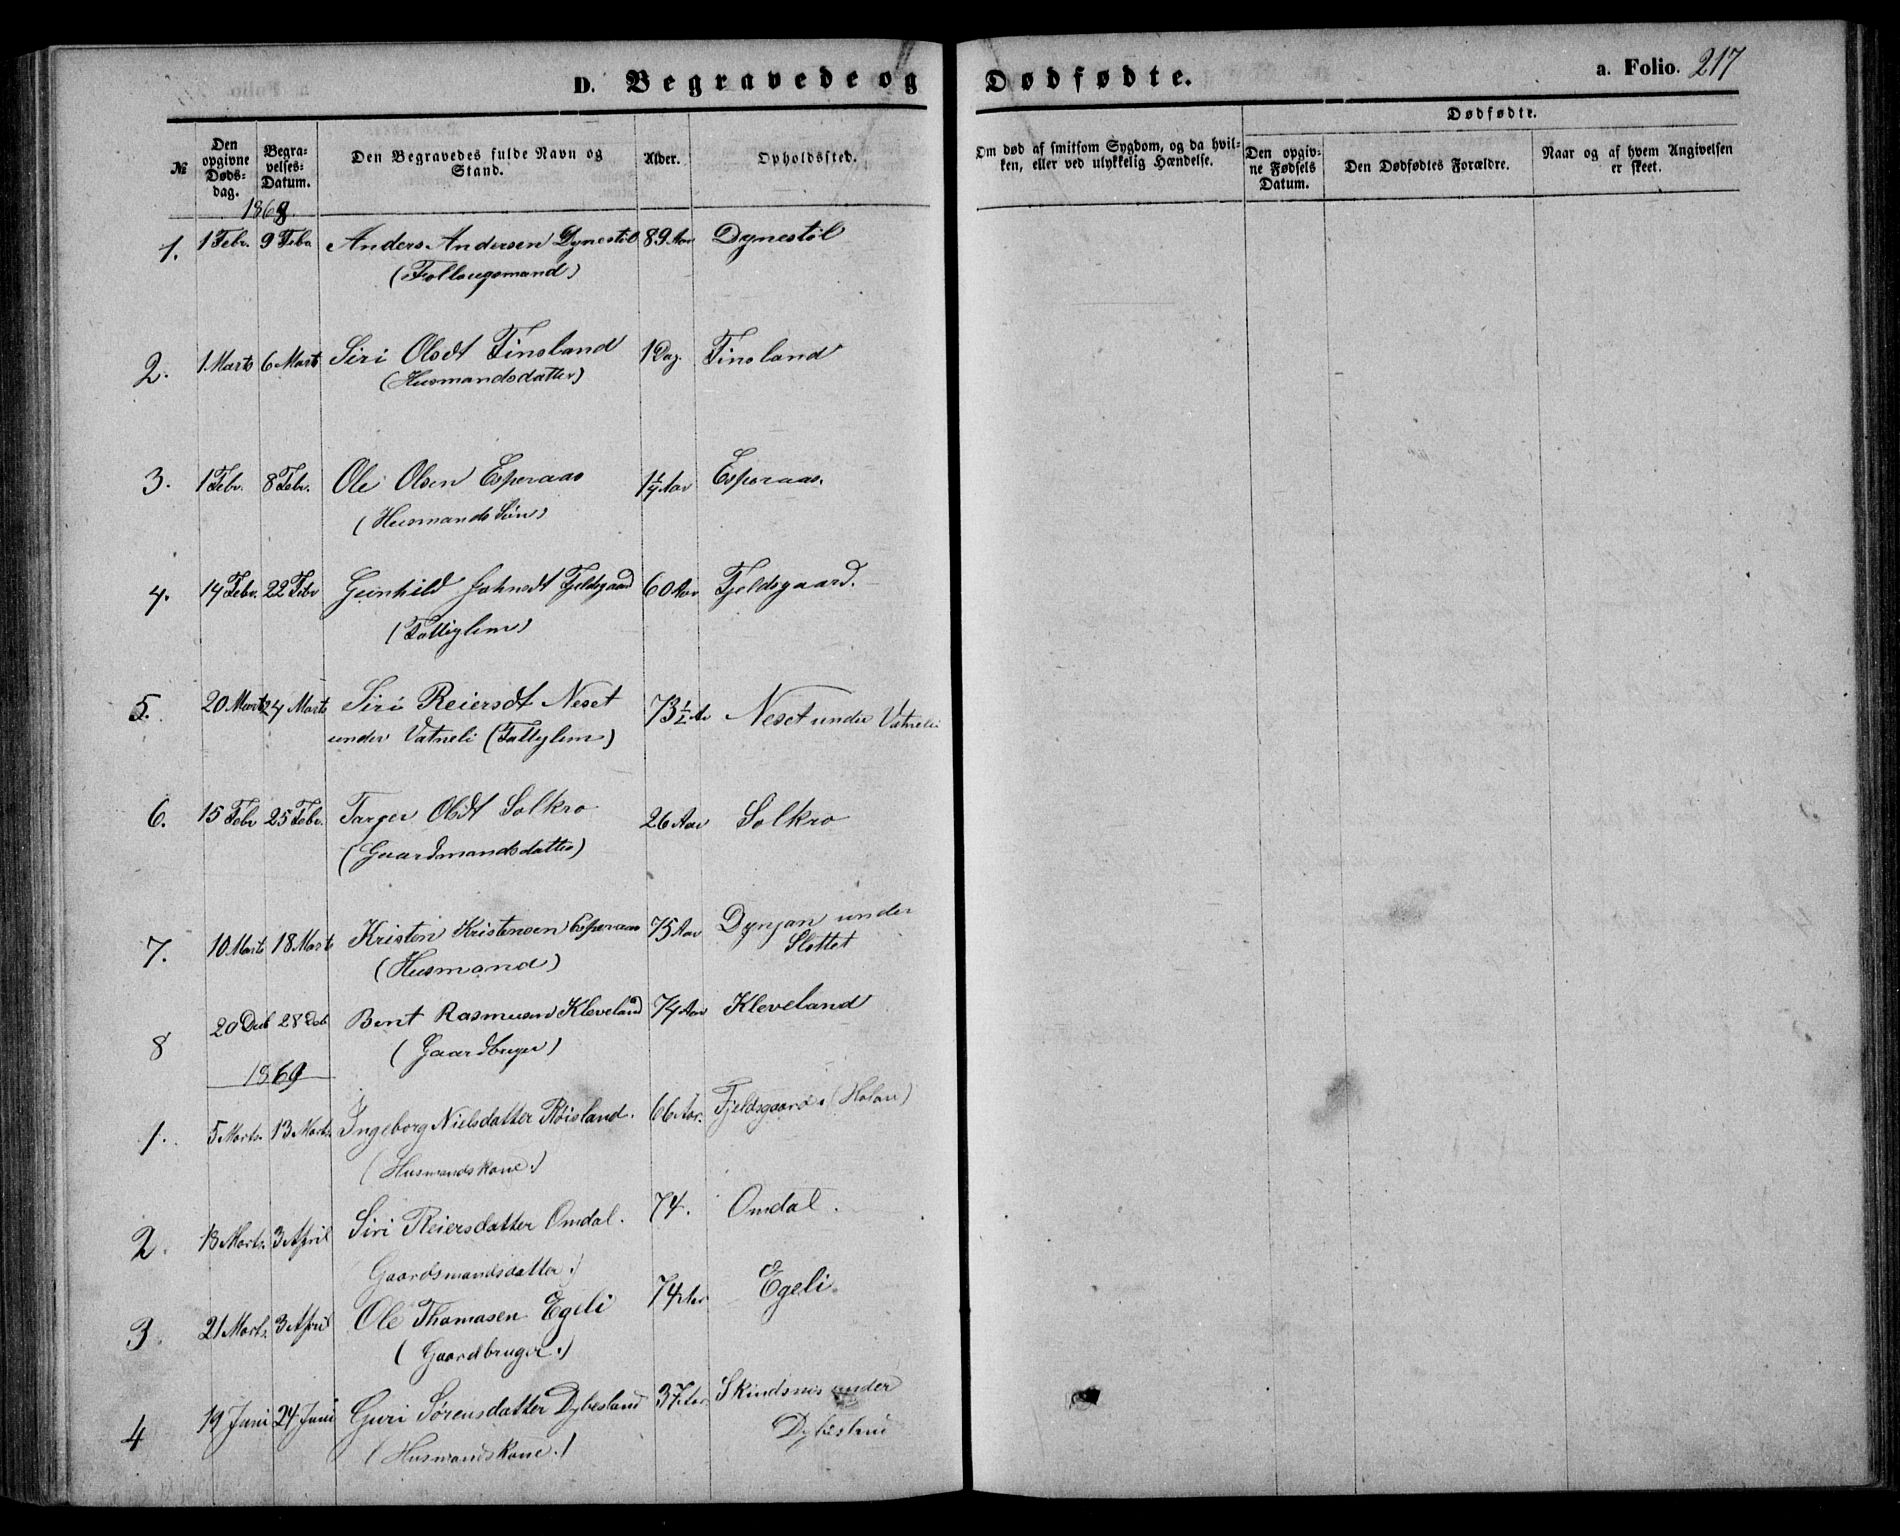 D. Begravede og Dødfødte.
a. Folio. 217
№
Den opgivne Døds-dag.
Begra-velses-Datum.
Den Begravedes fulde Navn og Stand.
Alder.
Opholdssted.
Om død af smitsom Sygdom, og da hvil-ken, eller ved ulykkelig Hændelse.
Dødfødte.
Den opgiv-ne Fødsels Datum.
Den Dødfødtes Forældre.
Naar og af hvem Angivelsen er skeet.
1868.
1. 1 Febr. 9 Febr. Anders Andersen Dynestøl 89 Aar Dynestøl
(Follougsmand)
2. 1 Marts 6 Marts Siri Olsdt Finsland 1 Dag. Finsland
(Husmandsdatter)
3. 1 Febr. 8 Febr. Ole Olsen Esperaas 1 1/4 Aar Esperaas.
(Husmands Søn)
4. 14 Febr. 22 Febr Gunhild Jahnsdt Fjeldsgaard 60 Aar Fjeldsgaard.
(Fattiglem)
5. 20 Marts 24 Marts Siri Reiersdt Neset 73 1/2 Ar Neset under Vatneli
under Vatneli (Fattiglem)
6. 15 Febr 25 Febr. Targer Olsdt Solkro 26 Aar Solkro
(Gaardmandsdatter)
7. 10 Marts 18 Marts Kristen Kristensen Esperaas 75 Aar Dynjan under
(Husmand) Slottet
8 20 Deb 28 Deb Bent Rasmusen Kleveland 74 Aar Kleveland
(Gaardbruger)
1869
1. 5 Marts. 13 Marts. Ingeborg Nielsdatter Røisland. 66 Aar. Fjeldsgaard. (Holan)
(Husmandskone.)
2. 13 Marts. 3 April Siri Reiersdatter Omdal. 74. Omdal.
Gaardsmandsdatter.)
3. 21 Marts. 3 April Ole Thomasen Egeli 74 Aar Egeli.
(Gaardbruger.)
4 19 Juni 24 Juni Guri Sørensdatter Dybesland 37 Aar. Skindsnes under
(Husmandskone.) Dybesland